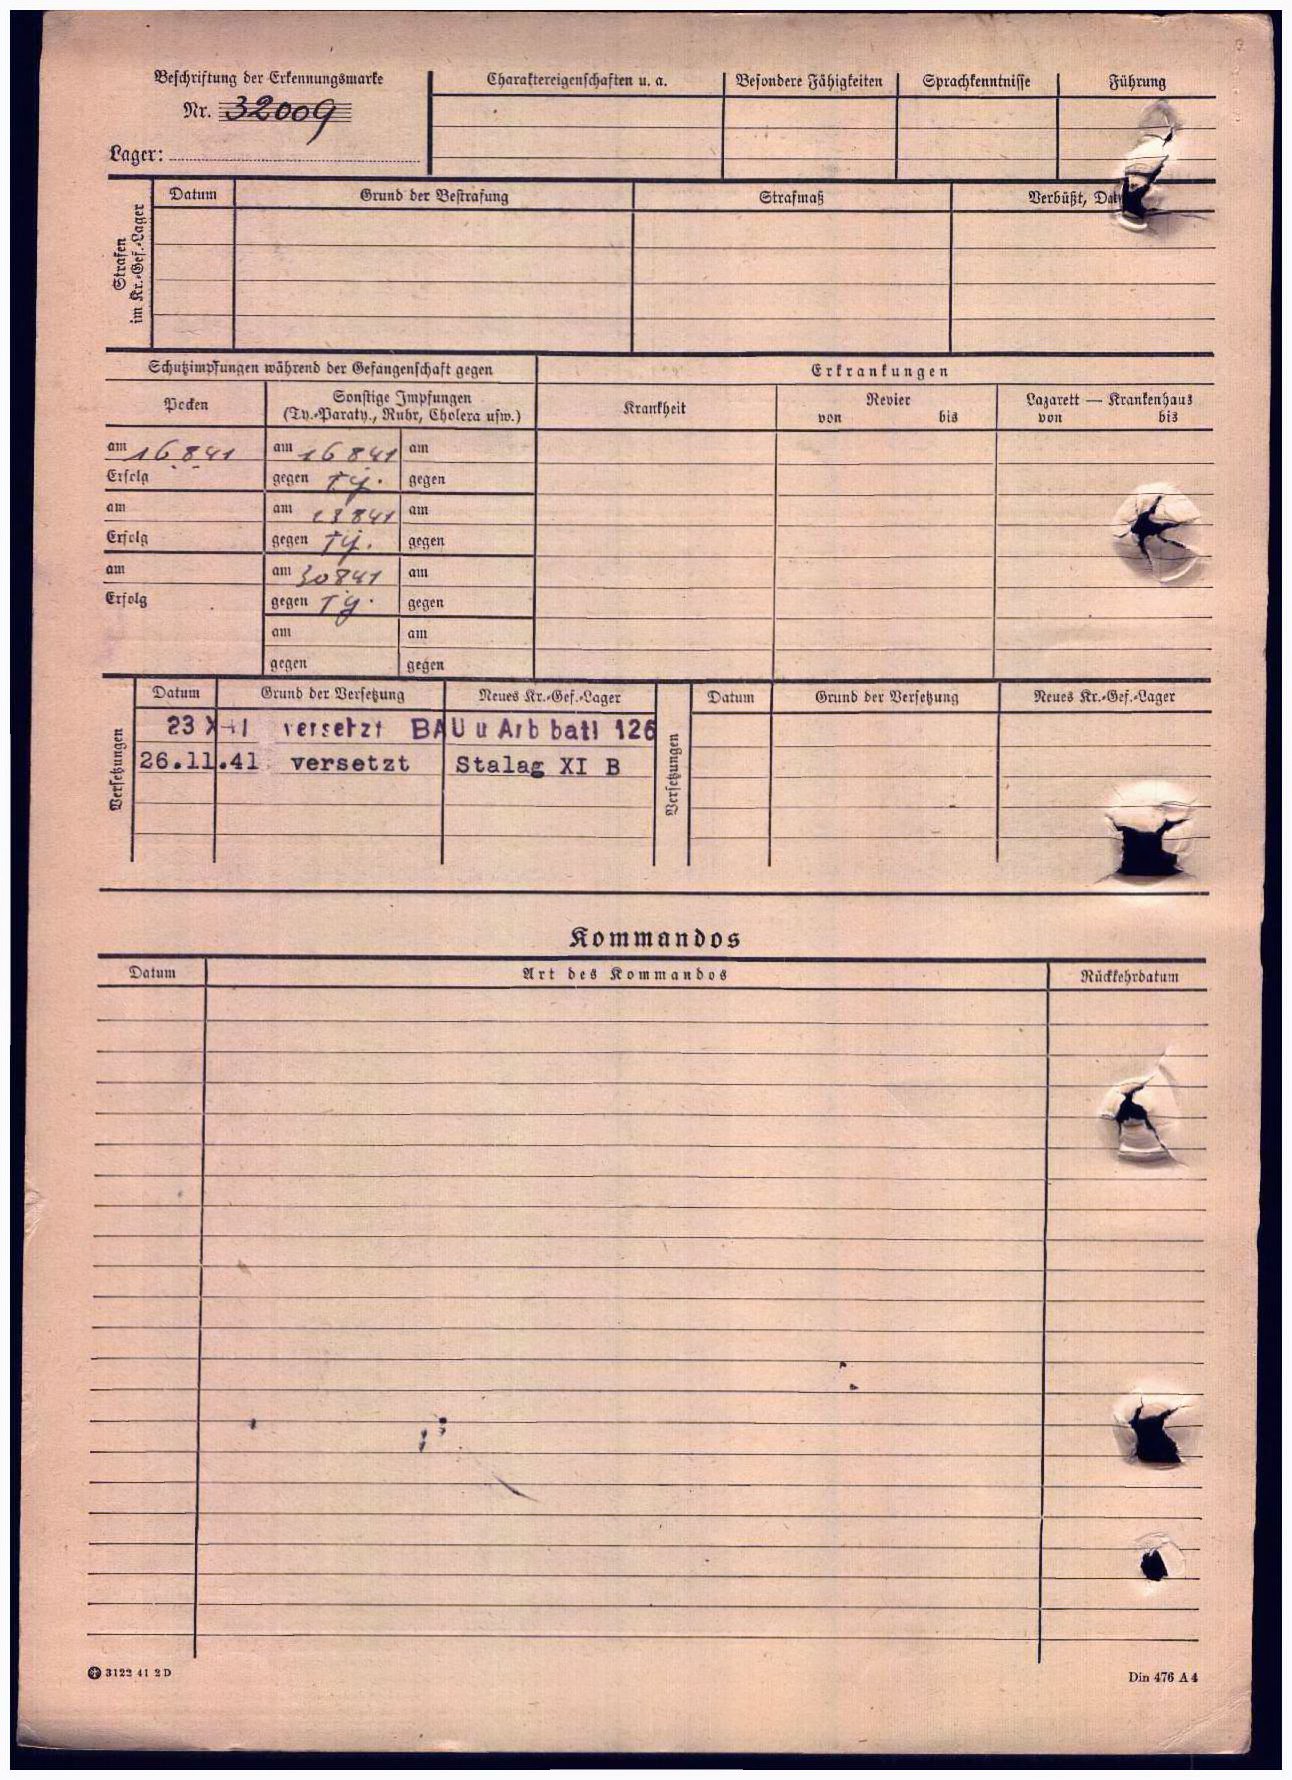 Beschriftung der Erkennungsmarke
Nr. 32009
Lager:
Charaktereigenschaften u. a.
Besondere Fähigkeiten
Sprachkenntnisse
Führung
Strafen
im Kr.-Gef.-Lager
Datum
Grund der Bestrafung
Strafmaß
Verbüßt,
Schutzimpfungen während der Gefangenschaft gegen
Erkrankungen
Pocken
Sonstige Impfungen
(Ty.-Paraty., Ruhr, Cholera usw.)
Krankheit
Revier
von bis
Lazarett — Krankenhaus
von bis
am 16 8 41 am 16 8 41 am
Erfolg gegen Ty. gegen
am am 23 8 41 am
Erfolg gegen Ty. gegen
am am 30 8 41 am
Erfolg gegen Ty. gegen
am am
gegen gegen
Versetzungen
Datum Grund der Versetzung Neues Kr.-Gef.-Lager
23 X 41 versetzt BAU u Arb batl 126
26.11.41 versetzt Stalag XI B
Versetzungen
Datum Grund der Versetzung Neues Kr.-Gef.-Lager
Kommandos
Datum Art des Kommandos Rückkehrdatum
3122 41 2 D
Din 476 A 4